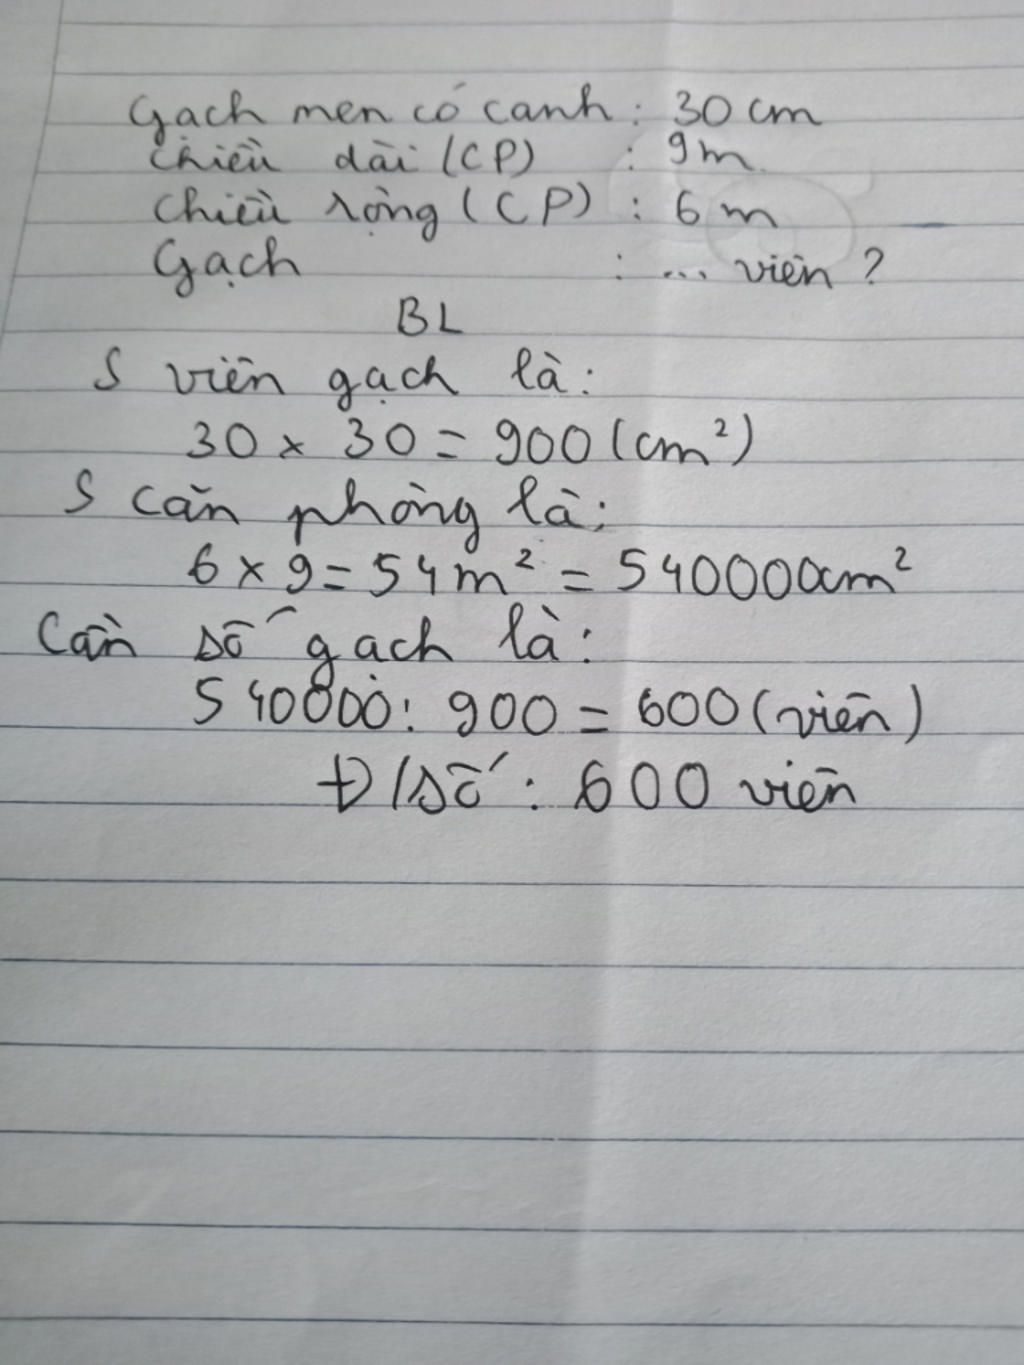 Gạch men có canh : 30 cm
chiều dài (CP) : 9m
Chiều rộng (CP) : 6 m
Gạch : ... viên ?
BL
S viên gạch là :
30 x 30 = 900 (cm²)
S căn phòng là :
6 x 9 = 54 m² = 540000cm²
Cần số gạch là :
540000 : 900 = 600 (viên)
Đ/số : 600 viên